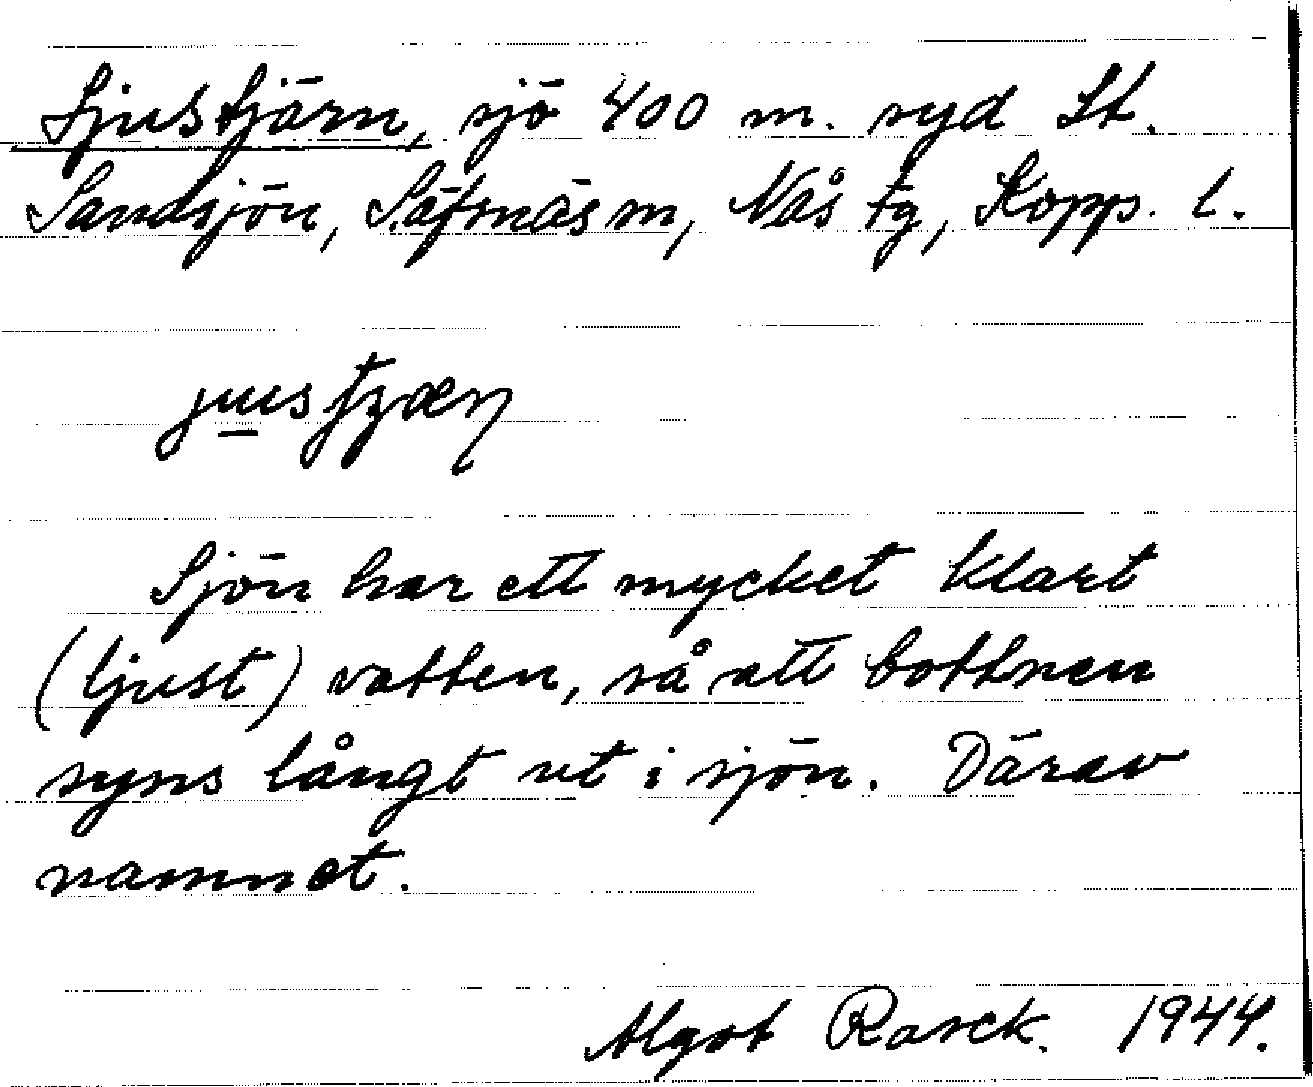 Ljustjärn, sjö 400 m. syd St.
Sandsjön, Säfsnäs sn, Nås tg, Kopp. l.
Sjön har ett mycket klart
(ljust) vatten, så att bottnen
syns långt ut i sjön. Därav
namnet.
Algot Rasck. 1944.